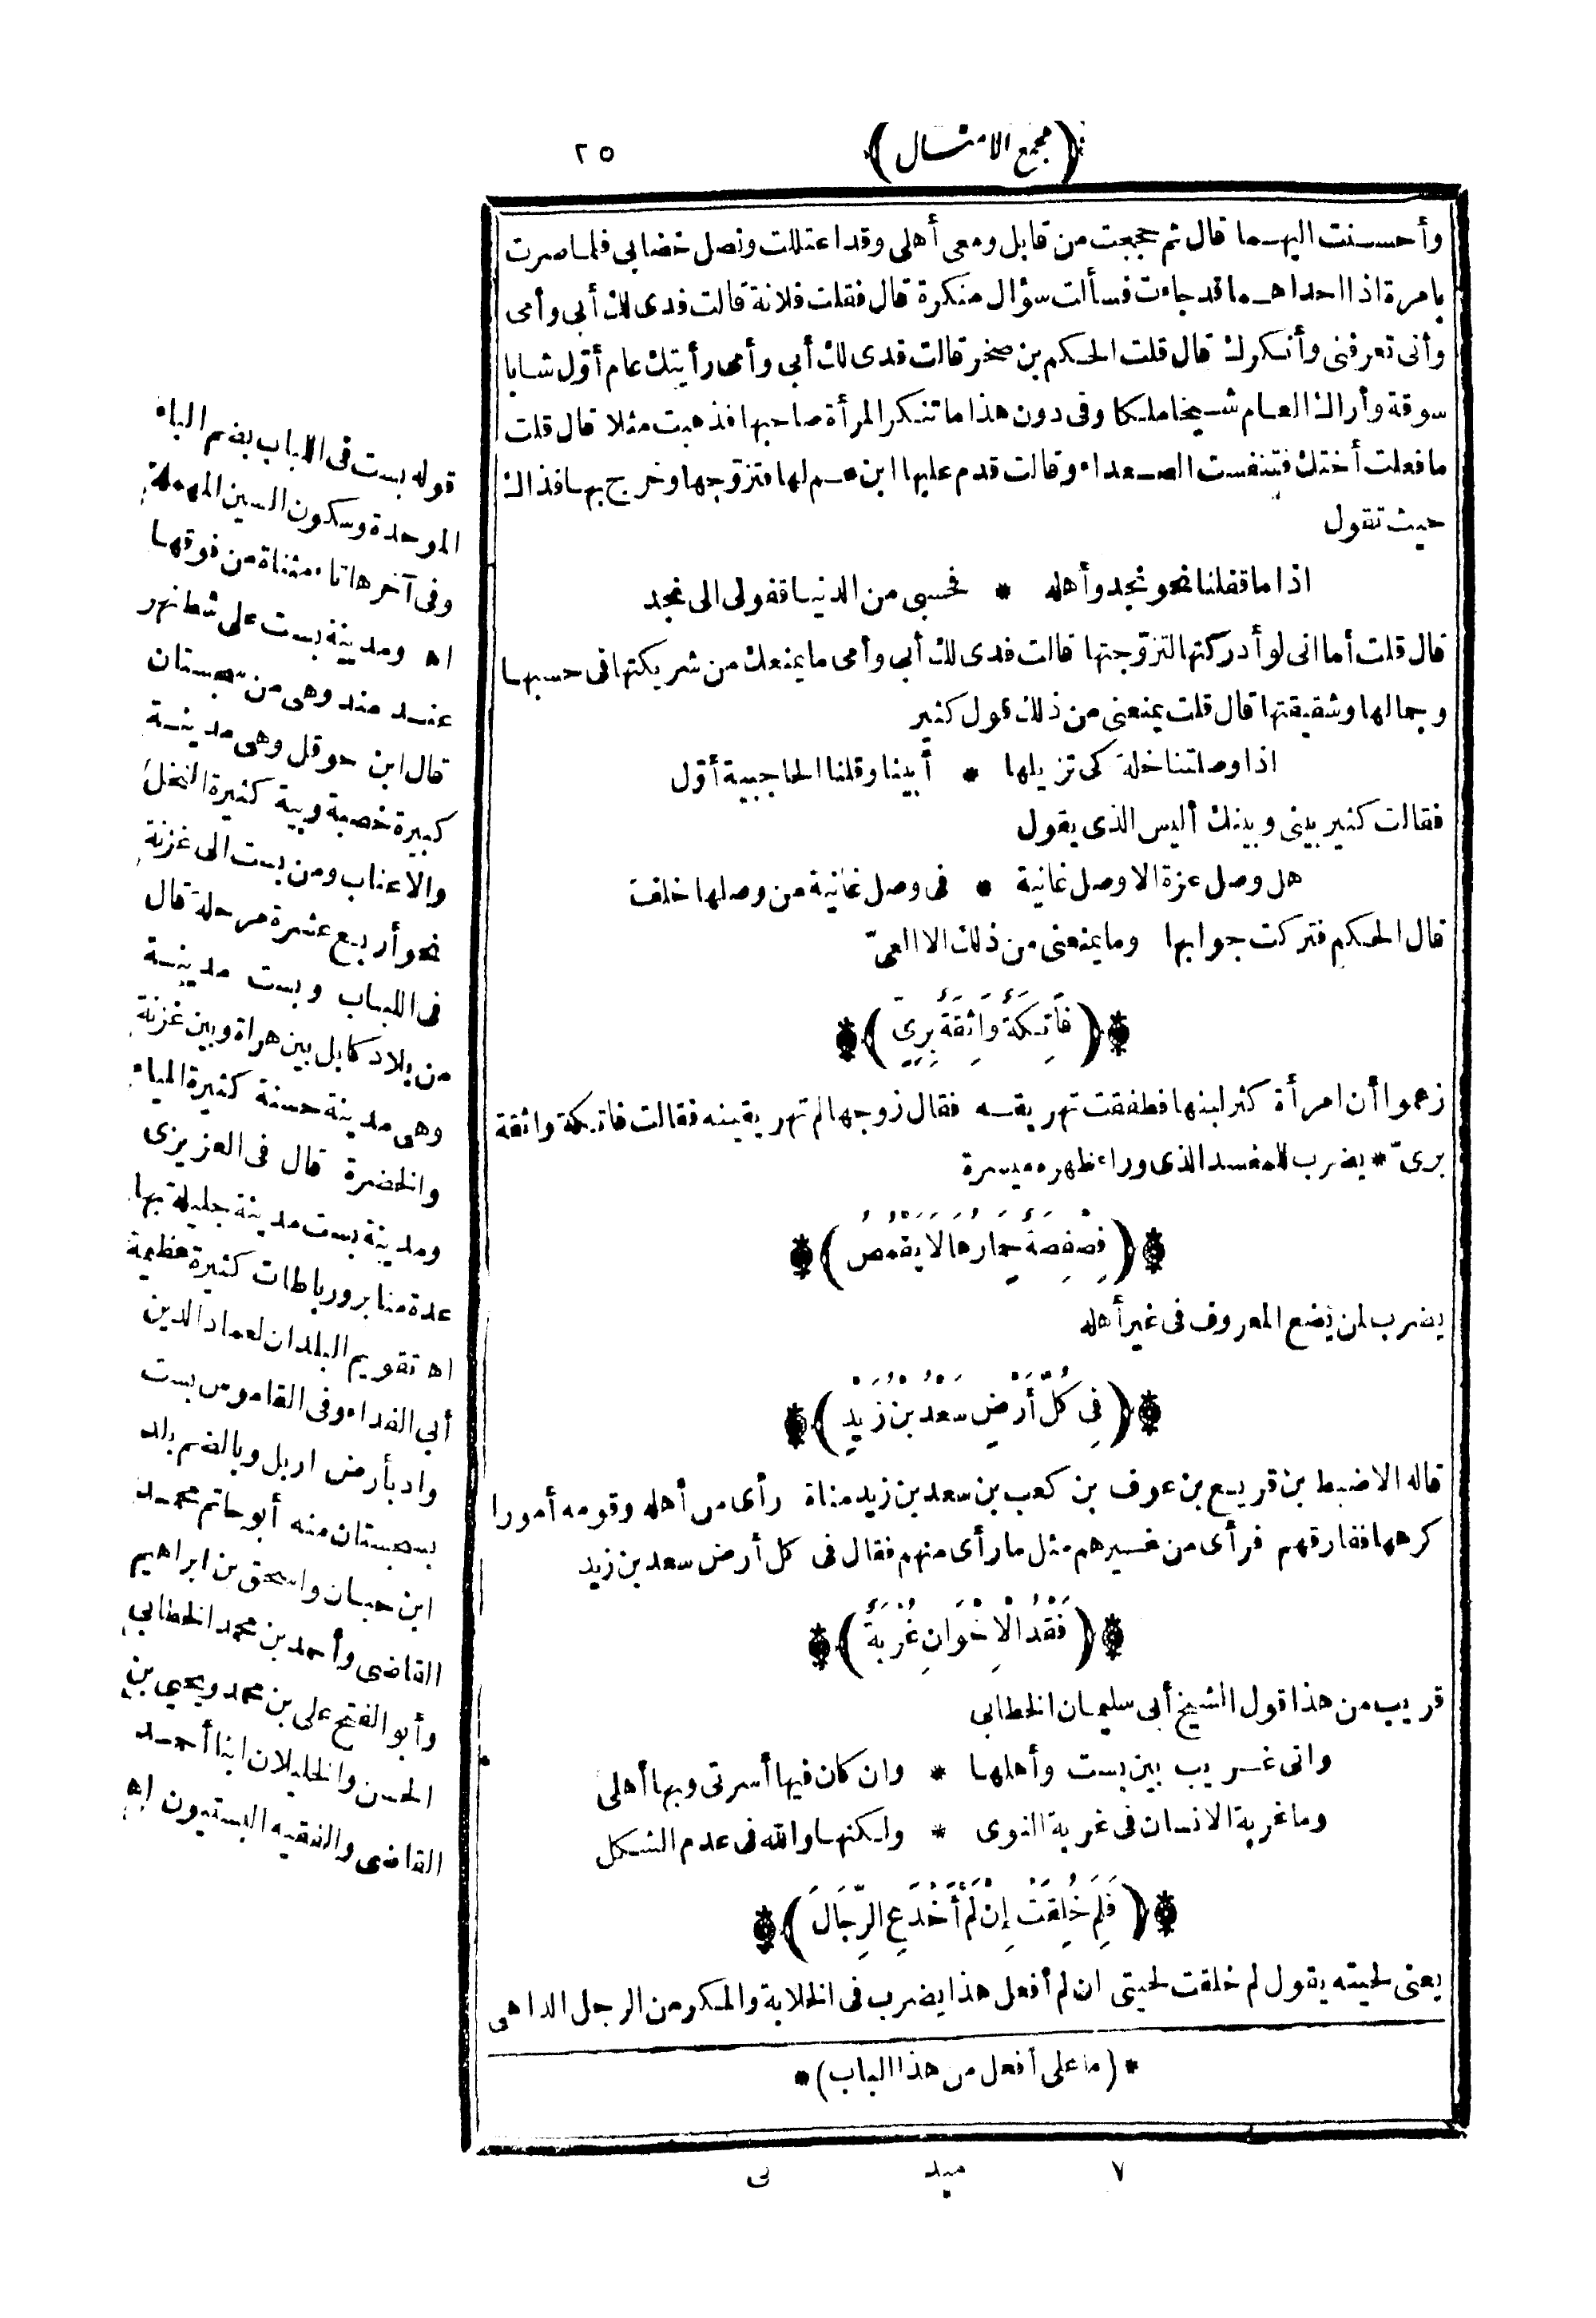 ﴿مجمع الامثال﴾
٢٥
وأحسنت اليهما قال ثم حججت من قابل ومعى أهلى وقد اعتللت ونصل خضابى فلما صرت
بامرة اذا احداهما قد جاءت فسألت سؤال منكرة قال فقلت فلانة قالت فدى لك أبى وأمى
وأنى تعرفنى وأنكرك قال قلت الحكم بن صخر قالت فدى لك أبى وأمى رأيتك عام أوّل شابا
سوقة وأراك العام شيخا ملكا وفى دون هذا ما تنكر المرأة صاحبها فذهبت مثلا قال قلت
ما فعلت أختك فتنفست الصعداء وقالت قدم عليها ابن عم لها فتزوّجها وخرج بها فذاك
حيث تقول
اذا ما قفلنا نحو نجد وأهله * فحسبى من الدنيا قفولى الى نجد
قال قلت أما انى لو أدركتها لتزوّجتها قالت فدى لك أبى وأمى ما يمنعك من شريكتها فى حسبها
وجمالها وشقيقتها قال قلت يمنعنى من ذلك قول كثير
اذا وصلتنا خلة كى تزيلها * أبينا وقلنا الحاجبية أوّل
فقالت كثير بينى وبينك أليس الذى يقول
هل وصل عزة الا وصل غانية * فى وصل غانية من وصلها خلف
قال الحكم فتركت جوابها وما يمنعنى من ذلك الا العىّ
﴿فَاتِكَةٌ وَاثِقَةٌ بِرِىٍّ﴾
زعموا أن امرأة كثر لبنها فطفقت تهريقه فقال زوجها لم تهريقينه فقالت فاتكة واثقة
برىّ * يضرب للمفسد الذى وراء ظهره ميسرة
﴿فِصْفِصَةٌ حِمَارُهَا لَا يَقْمُصُ﴾
يضرب لمن يضع المعروف فى غير أهله
﴿فِى كُلِّ أَرْضٍ سَعْدُ بْنُ زَيْدٍ﴾
قاله الاضبط بن قريع بن عوف بن كعب بن سعد بن زيد مناة رأى من أهله وقومه أمورا
كرهها ففارقهم فرأى من غيرهم مثل ما رأى منهم فقال فى كل أرض سعد بن زيد
﴿فَقْدُ الْاِخْوَانِ غُرْبَةٌ﴾
قريب من هذا قول الشيخ أبى سليمان الخطابى
وانى غريب بين بست وأهلها * وان كان فيها أسرتى وبها أهلى
وما غربة الانسان فى غربة النوى * ولكنها والله فى عدم الشكل
﴿فَلِمَ خُلِقَتْ إِنْ لَمْ أَخْدَعِ الرِّجَالَ﴾
يعنى لحيته يقول لم خلقت لحيتى ان لم أفعل هذا يضرب فى الخلابة والمكر من الرجل الداهى
*(ما على أفعل من هذا الباب)*
٧ ميد نى
قوله بست فى اللباب بضم الباء
الموحدة وسكون السين المهملة
وفى آخرها تاء مثناة من فوقها
اه ومدينة بست على شط نهر
عند مند وهى من سجستان
قال ابن حوقل وهى مدينة
كبيرة خصبة وبية كثيرة النخل
والاعناب ومن بست الى غزنة
نحو أربع عشرة مرحلة قال
فى اللباب وبست مدينة
من بلاد كابل بين هراة وبين غزنة
وهى مدينة حسنة كثيرة المياه
والخضرة قال فى العزيزى
ومدينة بست مدينة جليلة بها
عدة منابر ورباطات كثيرة عظيمة
اه تقويم البلدان لعماد الدين
أبى الفداء وفى القاموس بست
واد بأرض اربل وبالضم بلد
بسجستان منه أبو حاتم محمد
ابن حبان واسحق بن ابراهيم
القاضى وأحمد بن محمد الخطابى
وأبو الفتح على بن محمد ويحيى بن
الحسن والخليلان ابنا أحمد
القاضى والفقيه البستيون اه